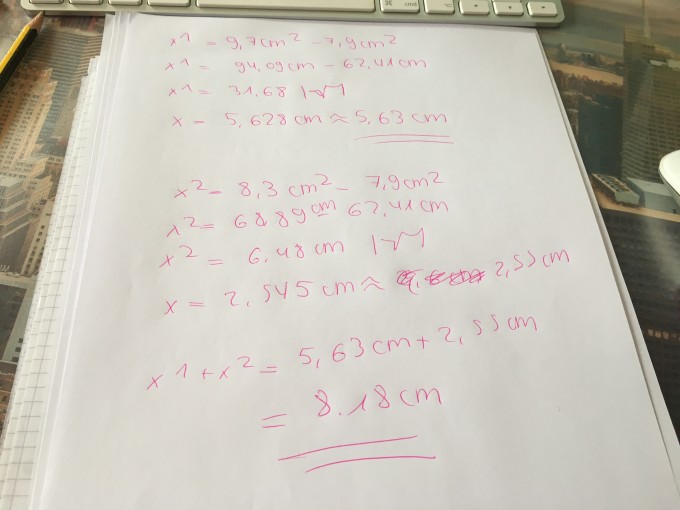 x1 = 9,7cm² - 7,9cm²
x1 = 94,09cm - 62,41cm
x1 = 31,68 |√
x = 5,628cm ≈ 5,63 cm
x² = 8,3 cm² - 7,9cm²
x² = 68,89cm - 62,41cm
x² = 6,48cm |√
x = 2,545cm ≈ 2,55cm
x1 + x² = 5,63cm + 2,55cm
= 8.18cm